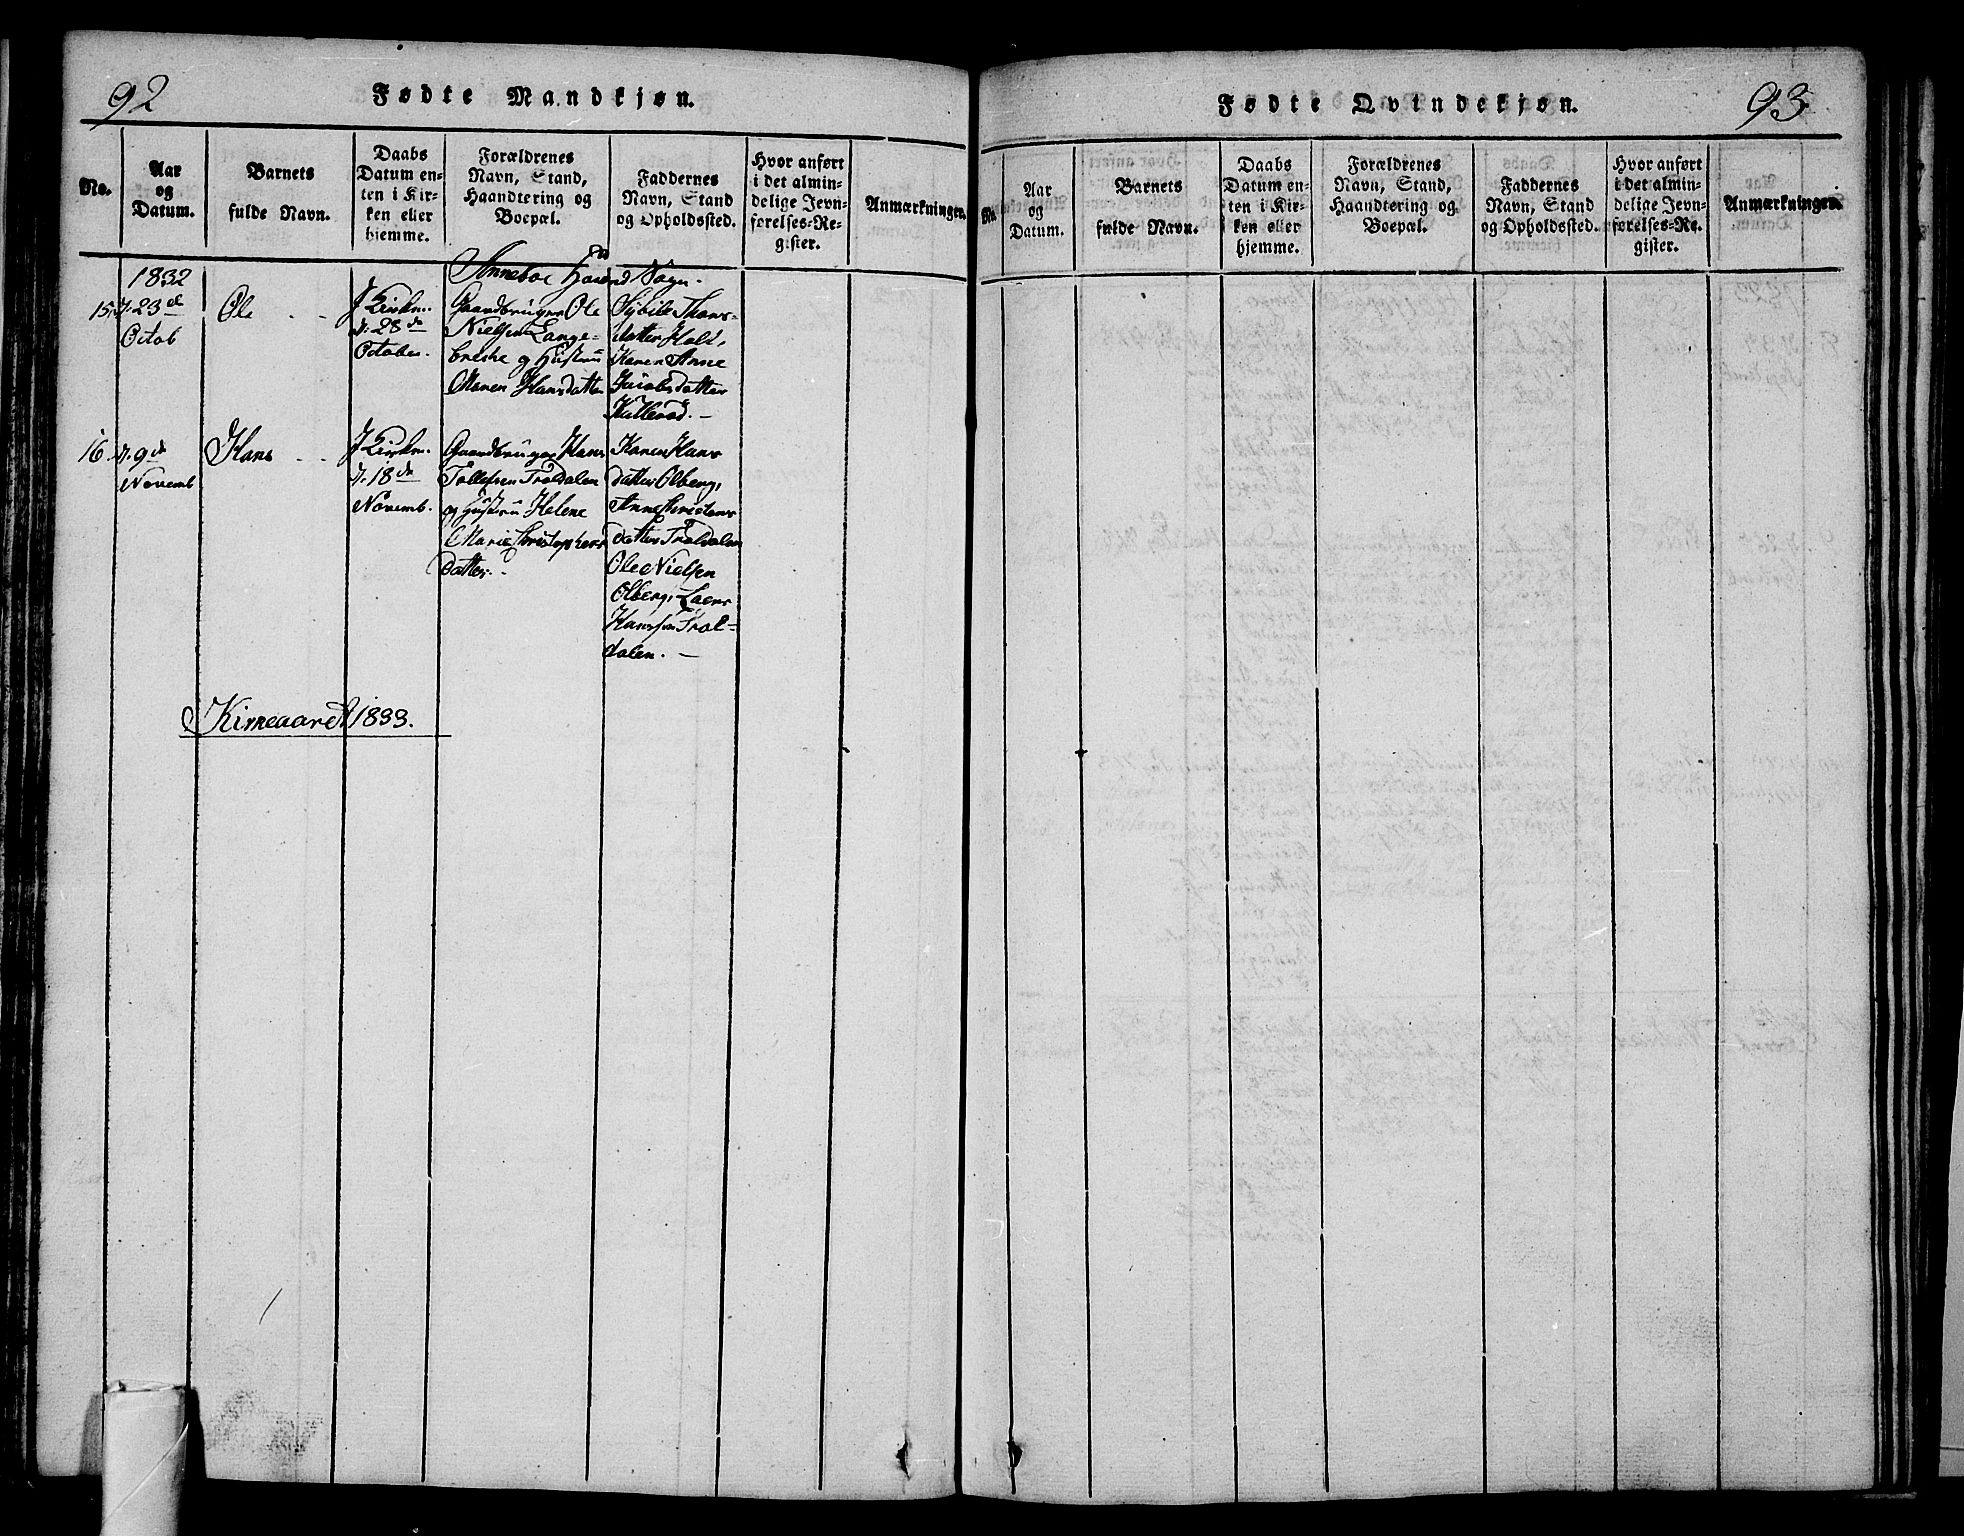 92
Fødte Mandkjøn.
No.
Aar
og
Datum.
Barnets
fulde Navn.
Daabs
Datum en-
ten i Kir-
ken eller
hjemme.
Forældrenes
Navn, Stand,
Haandtering og
Boepæl.
Faddernes
Navn, Stand
og Opholdssted.
Hvor anført
i det almin-
delige Jevn-
førelses-Re-
gister.
Anmærkninger.
Anneboe Sogn.
1832
15, d. 23de
Octob
Ole
J Kirken
d. 28de
October.
Gaardbruger Ole
Nielsen Lange-
brekke og Hustru
Maren Hansdatter
Sybille Thors-
datter Holt,
Karen Anne
Jacobsdatter
Kullerød. —
16. d. 9de
Novemb
Hans
J Kirken
d. 18de
Novemb.
Gaardbruger Hans
Tollefsen Troldalen
og Hustru Helene
Marie Christophers
datter.
Karen Hans
datter Olberg,
Anne Christens
datter Troldalen
Ole Nielsen
Olberg, Laers
Hanssen Trol-
dalen. —
Kirkeaaret 1833.
93
Fødte Qvindekjøn.
No.
Aar
og
Datum.
Barnets
fulde Navn.
Daabs
Datum en-
ten i Kir-
ken eller
hjemme.
Forældrenes
Navn, Stand,
Haandtering og
Boepæl.
Faddernes
Navn, Stand
og Opholdssted.
Hvor anført
i det almin-
delige Jevn-
førelses-Re-
gister.
Anmærkninger.